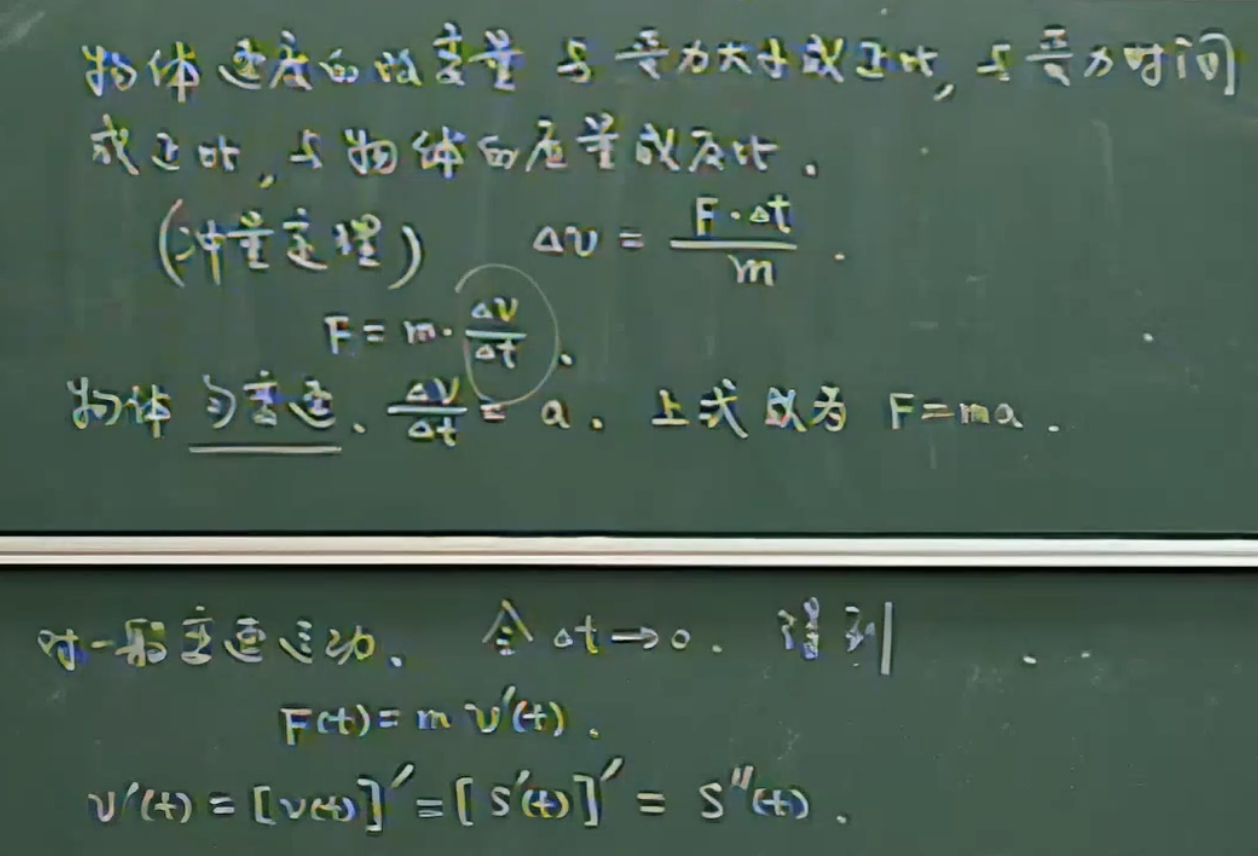 物体速度的改变量与受力大小成正比,与受力时间
成正比,与物体的质量成反比.
(冲量定理) Δv = F·Δt / m .
F = m · Δv/Δt .
物体匀变速、Δv/Δt = a. 上式改为 F=ma.
对一般变速运动、 令 Δt→0. 得到
F(t) = m v'(t).
v'(t) = [v(t)]' = [s'(t)]' = s''(t).